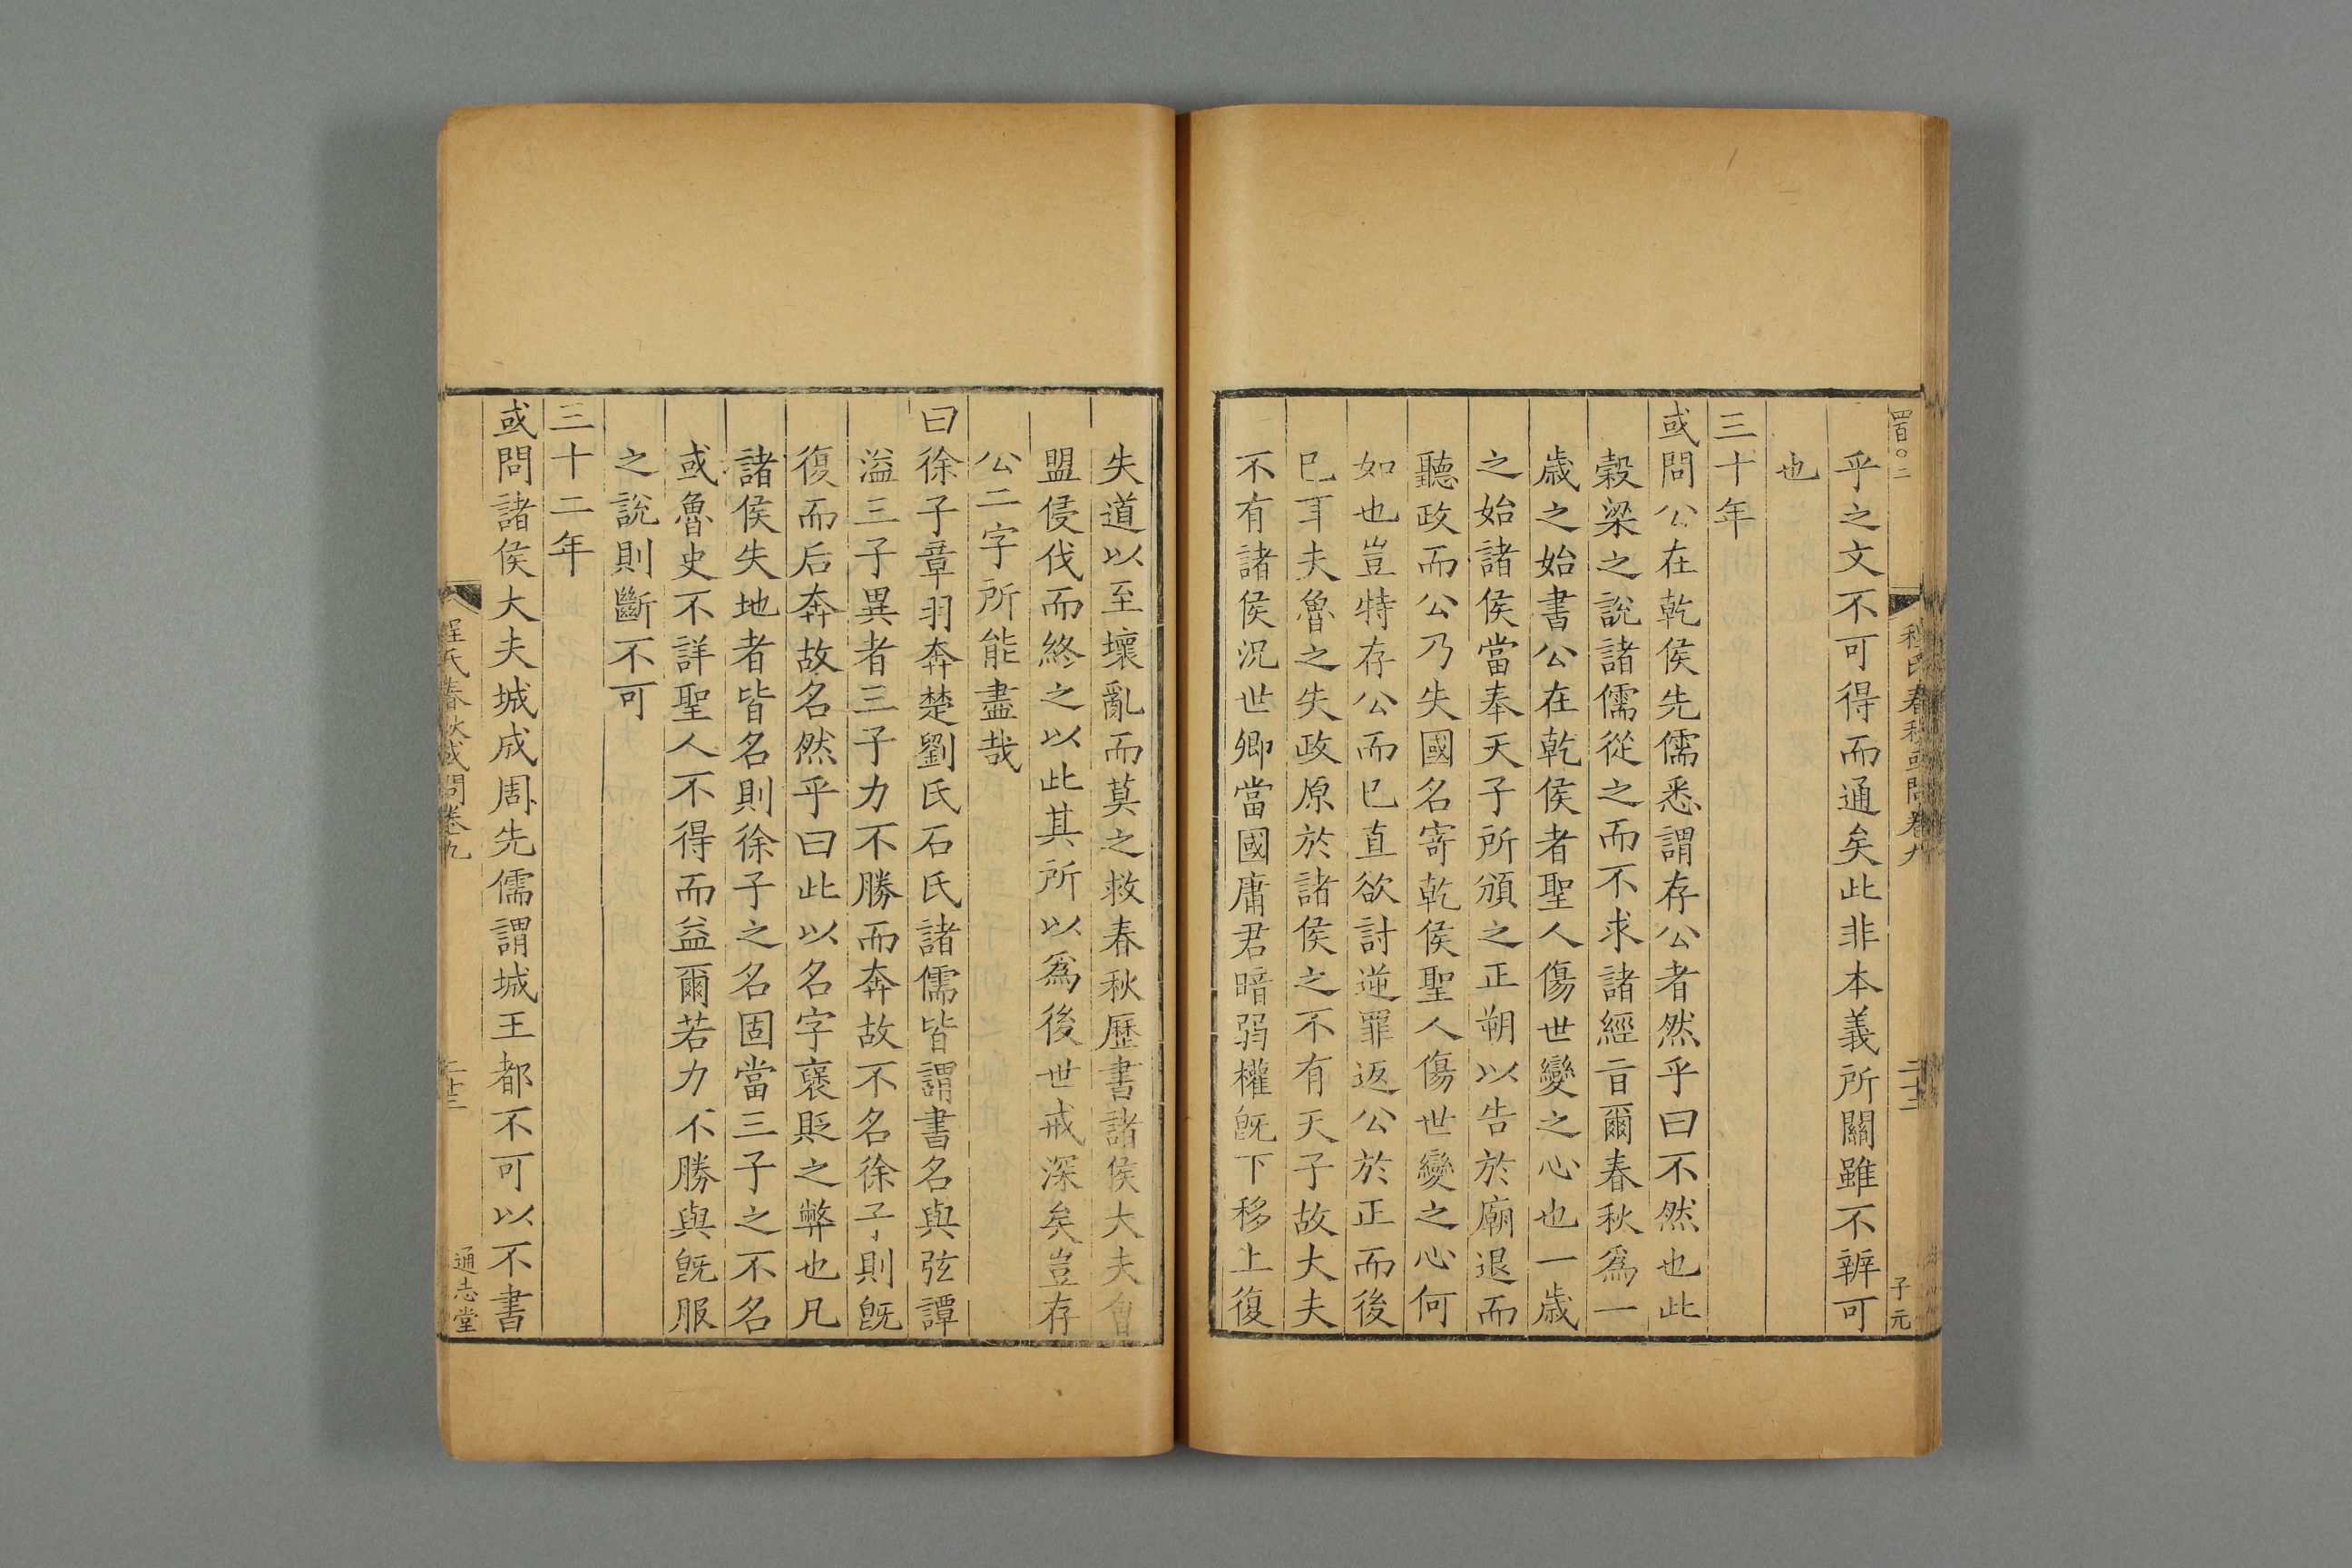 四百〇二
程氏春秋或問卷九
二十二
子元
乎之文不可得而通矣此非本義所關雖不辨可
也
三十年
或問公在乾侯先儒悉謂存公者然乎曰不然也此
穀梁之說諸儒從之而不求諸經旨爾春秋爲一
歲之始書公在乾侯者聖人傷世變之心也一歲
之始諸侯當奉天子所頒之正朔以告於廟退而
聽政而公乃失國名寄乾侯聖人傷世變之心何
如也豈特存公而已直欲討逆罪返公於正而後
已耳夫魯之失政原於諸侯之不有天子故大夫
不有諸侯況世卿當國庸君暗弱權旣下移上復
失道以至壞亂而莫之救春秋歷書諸侯大夫會
盟侵伐而終之以此其所以爲後世戒深矣豈存
公二字所能盡哉
曰徐子章羽奔楚劉氏石氏諸儒皆謂書名與弦譚
溢三子異者三子力不勝而奔故不名徐子則旣
復而后奔故名然乎曰此以名字襃貶之弊也凡
諸侯失地者皆名則徐子之名固當三子之不名
或魯史不詳聖人不得而益爾若力不勝與旣服
之說則斷不可
三十二年
或問諸侯大夫城成周先儒謂城王都不可以不書
程氏春秋或問卷九
二十二
通志堂